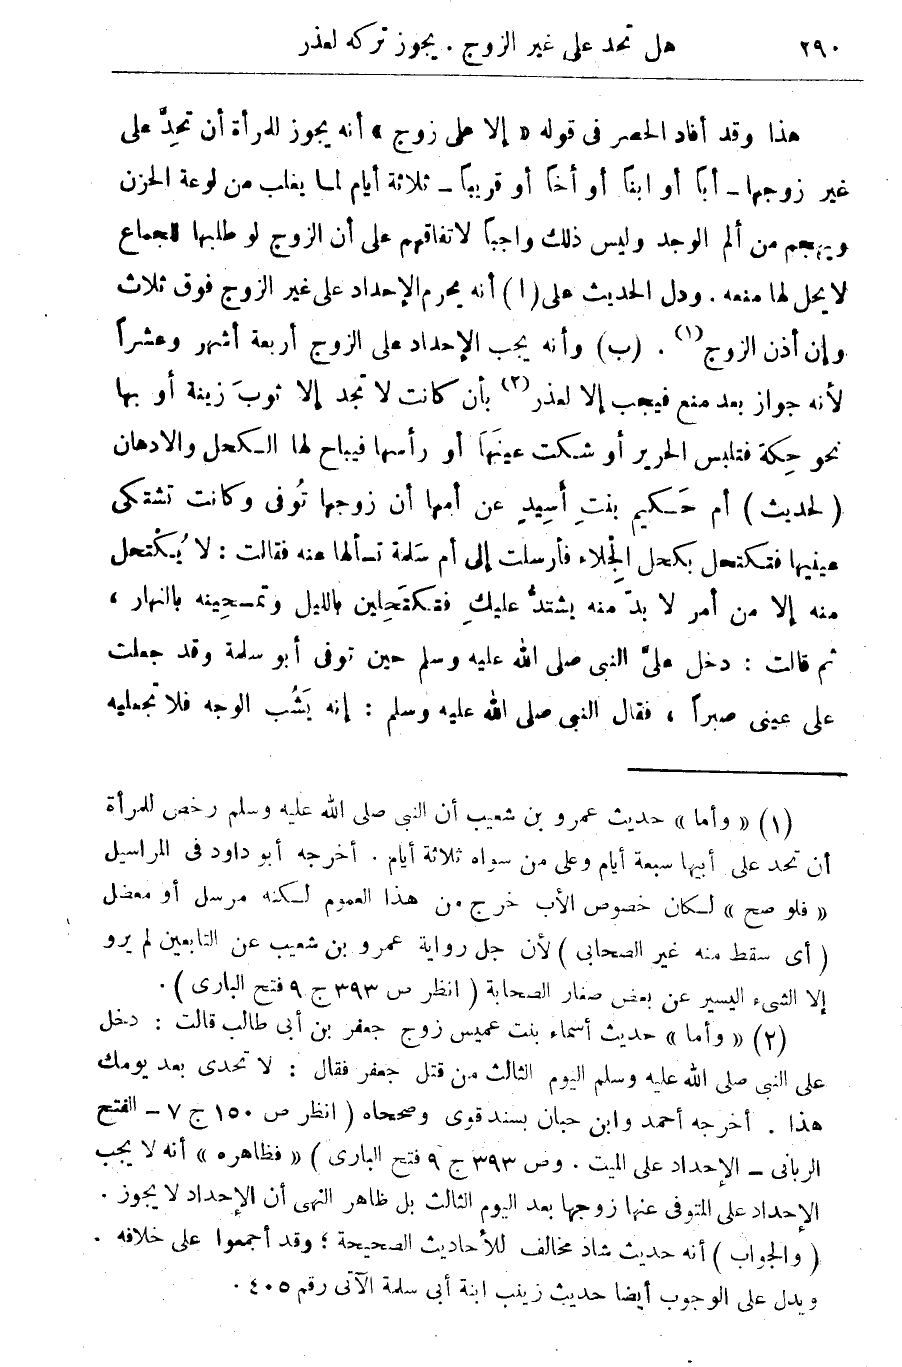 ٢٩٠ هل تحد على غير الزوج . يجوز تركه لعذر
هذا وقد أفاد الحصر فى قوله « إلا على زوج » أنه يجوز للمرأة أن تحِدَّ على
غير زوجها – أباً أو ابناً أو أخاً أو قريباً – ثلاثة أيام لما يغلب من لوعة الحزن
ويهجم من ألم الوجد وليس ذلك واجباً لاتفاقهم على أن الزوج لو طلبها للجماع
لا يحل لها منعه . ودل الحديث على (ا) أنه يحرم الإحداد على غير الزوج فوق ثلاث
وإن أذن الزوج(١) . (ب) وأنه يجب الإحداد على الزوج أربعة أشهر وعشراً
لأنه جواز بعد منع فيجب إلا لعذر(٢) بأن كانت لا تجد إلا ثوبَ زينة أو بها
نحو حِكة فتلبس الحرير أو شكت عينَهاَ أو رأسها فيباح لها الكحل والادهان
(لحديث) أم حَكيم بنتِ أَسِيدٍ عن أمها أن زوجها تُوفى وكانت تشتكى
عينيها فتكتحل بكحل الجِلاء فأرسلت إلى أم سَلمة تسألها عنه فقالت : لا يُكْتحل
منه إلا من أمر لا بدّ منه يشتدُّ عليكِ فتكتَحِلين بالليل وتمسحِينه بالنهار ،
ثم قالت : دخل علىَّ النبى صلى الله عليه وسلم حين توفى أبو سلمة وقد جعلت
على عينى صبراً ، فقال النبى صلى الله عليه وسلم : إنه يَشُب الوجه فلا تجعليه
(١) « وأما » حديث عمرو بن شعيب أن النبى صلى الله عليه وسلم رخص للمرأة
أن تحد على أبيها سبعة أيام وعلى من سواه ثلاثة أيام . أخرجه أبو داود فى المراسيل
« فلو صح » لكان خصوص الأب خرج من هذا العموم لكنه مرسل أو معضل
( أى سقط منه غير الصحابى ) لأن جل رواية عمرو بن شعيب عن التابعين لم يرو
إلا الشىء اليسير عن بعض صغار الصحابة ( انظر ص ٣٩٣ ج ٩ فتح البارى ) .
(٢) « وأما » حديث أسماء بنت عميس زوج جعفر بن أبى طالب قالت : دخل
على النبى صلى الله عليه وسلم اليوم الثالث من قتل جعفر فقال : لا تحدى بعد يومك
هذا . أخرجه أحمد وابن حبان بسند قوى وصححاه ( انظر ص ١٥٠ ج ٧ – الفتح
الربانى – الإحداد على الميت . وص ٣٩٣ ج ٩ فتح البارى ) « فظاهره » أنه لا يجب
الإحداد على المتوفى عنها زوجها بعد اليوم الثالث بل ظاهر النهى أن الإحداد لا يجوز .
( والجواب ) أنه حديث شاذ مخالف للأحاديث الصحيحة ؛ وقد أجمعوا على خلافه .
ويدل على الوجوب أيضا حديث زينب ابنة أبى سلمة الآتى رقم ٤٠٥ .